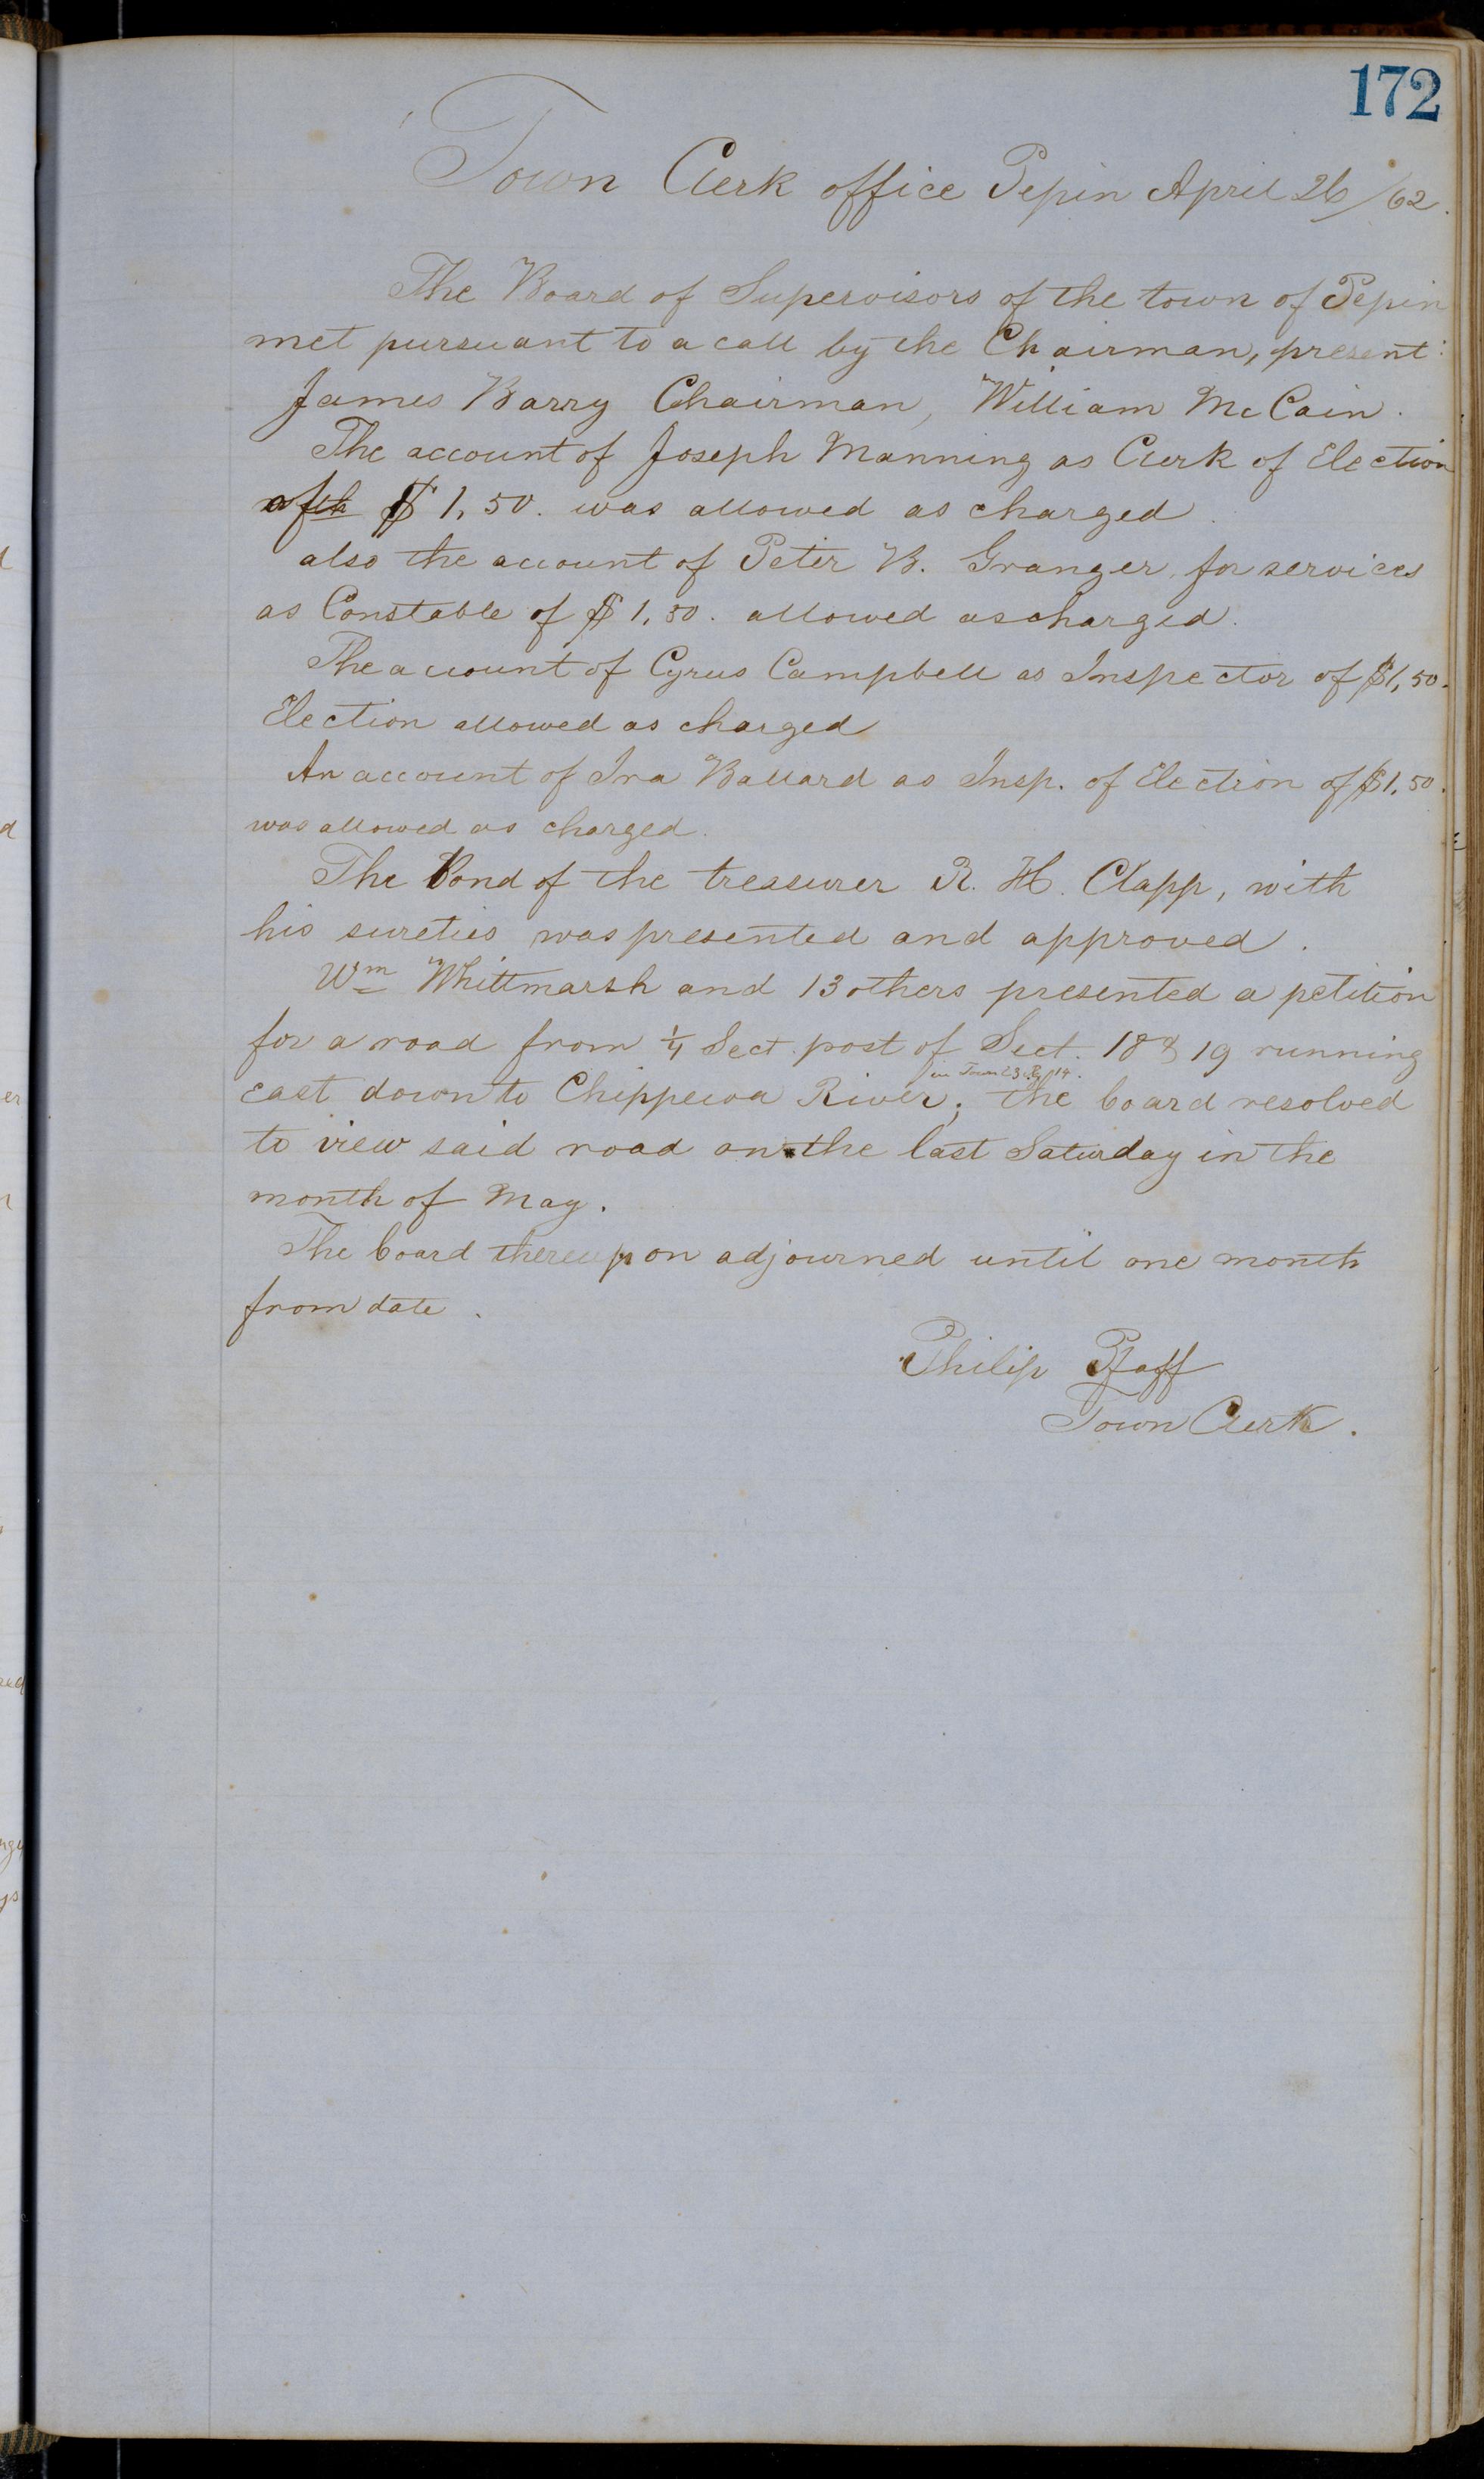 172
Town Clerk office Pepin April 26/62.
The Board of Supervisors of the town of Pepin
met pursuant to a call by the Chairman, present:
James Barry Chairman, William McCain.
The account of Joseph Manning as Clerk of Election
of $1,50. was allowed as charged.
also the account of Peter B. Granger, for services
as Constable of $1,50. allowed as charged.
The account of Cyrus Campbell as Inspector of $1,50.
Election allowed as charged
An account of Ira Ballard as Insp. of Election of $1,50.
was allowed as charged.
The Bond of the treasurer R. H. Clapp, with
his sureties was presented and approved.
Wm Whittmarsh and 13 others presented a petition
for a road from 1/4 Sect. post of Sect. 18 & 19 running
in Town 23 R 14.
east down to Chippewa River; the board resolved
to view said road on the last Saturday in the
month of May.
The board thereupon adjourned until one month
from date.
Philip Pfaff
Town Clerk.